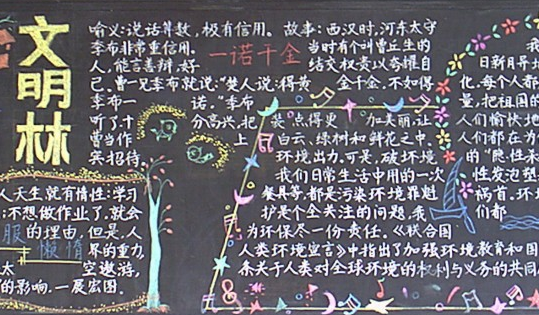 文明林
喻义:说话算数,极有信用。 故事:西汉时,河东太守
季布非常重信用。
一诺千金
当时有个叫曹丘生的
人,能言善辩,好
结交权贵以夸耀自
己。曹一见季布就说:"楚人说:得黄
金千金,不如得
季布一
诺。"季布
听了十
分高兴,把
曹当作
上
宾招待
人天生就有惰性:学习
;不想做作业了,就会
服的埋由,但是,人
懒惰
界的重力,
太
空遨游,
的影响,一展宏图。
装点得更
加美丽,让
白云、绿树和鲜花之中.
环境出力.可是,破坏境
我们日常生活中用的一次
餐具等,都是污染环境罪魁
护是个全关注的问题,我
为环保尽一份责任。《联合国
人类环境宣言》中指出了加强环境教育和国
条关于人类对全球环境的权利与义务的共同
我
日新月异
化.每个人都
量,把祖国的
人们愉快地
人们都在为
的"隐性杀
性发泡塑
祸首。环境
们都